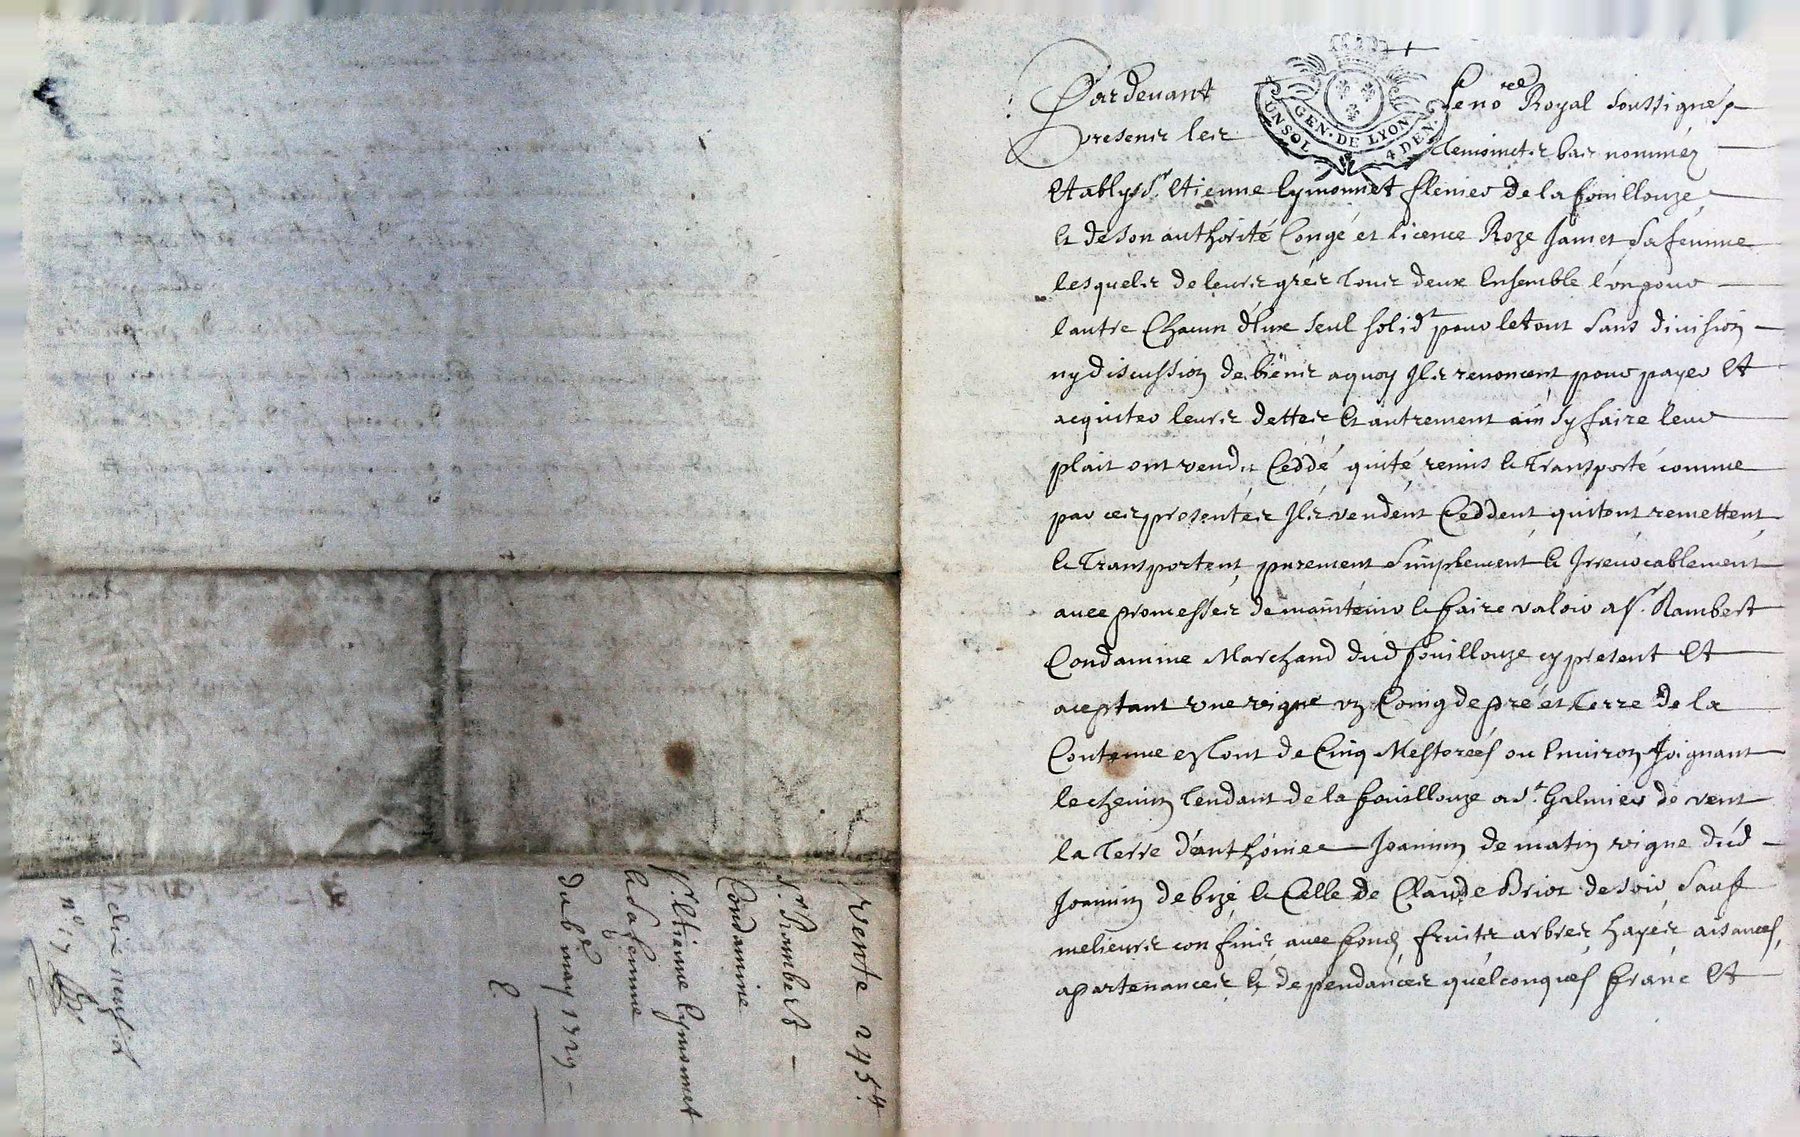 vente 245ᵗᵗ
Sr. Rambert
Condamine
Sr. Etienne Eymonnet
& sa femme
du 6e may
Pardevant le nore. Royal soussigné &
presents les temoinets bas nommez
Establys Sr. Etienne Eymonnet de la fouillouze,
Et de son authorité Congé et licence Roze Jamet sa femme
lesquels de leurs gréz tous deux Ensemble l'un pour
l'autre Chacun d'Eux seul solidt. pour le tout sans division
ny discussion de biens a quoy Ils renoncent pour payer Et
acquiter leurs dettes Et autrement ainsy faire leur
plait ont vendu Ceddé quité remis & Transporté comme
par ces presentes Ils vendent Ceddent quitent remettent
& Transportent purement simplement & Irrevocablement
avec promesses de maintenir & faire valoir a Sr. Rambert
Condamine Marchand dud fouillouze cy present Et
aceptant une vigne un Coing de pré et Terre de la
Contenue en tout de Cinq Mesterées ou Environ Joignant
le chemin Tendant de la fouillouze a St. Galmier de vent
la Terre d'anthoine Joannin de matin vigne dud
Joannin de bize & Celle de Claude Briot de soir sauf
melieurs confins avec fonds fruits arbres hayes aisances,
apartenances & dependances quelconques franc Et